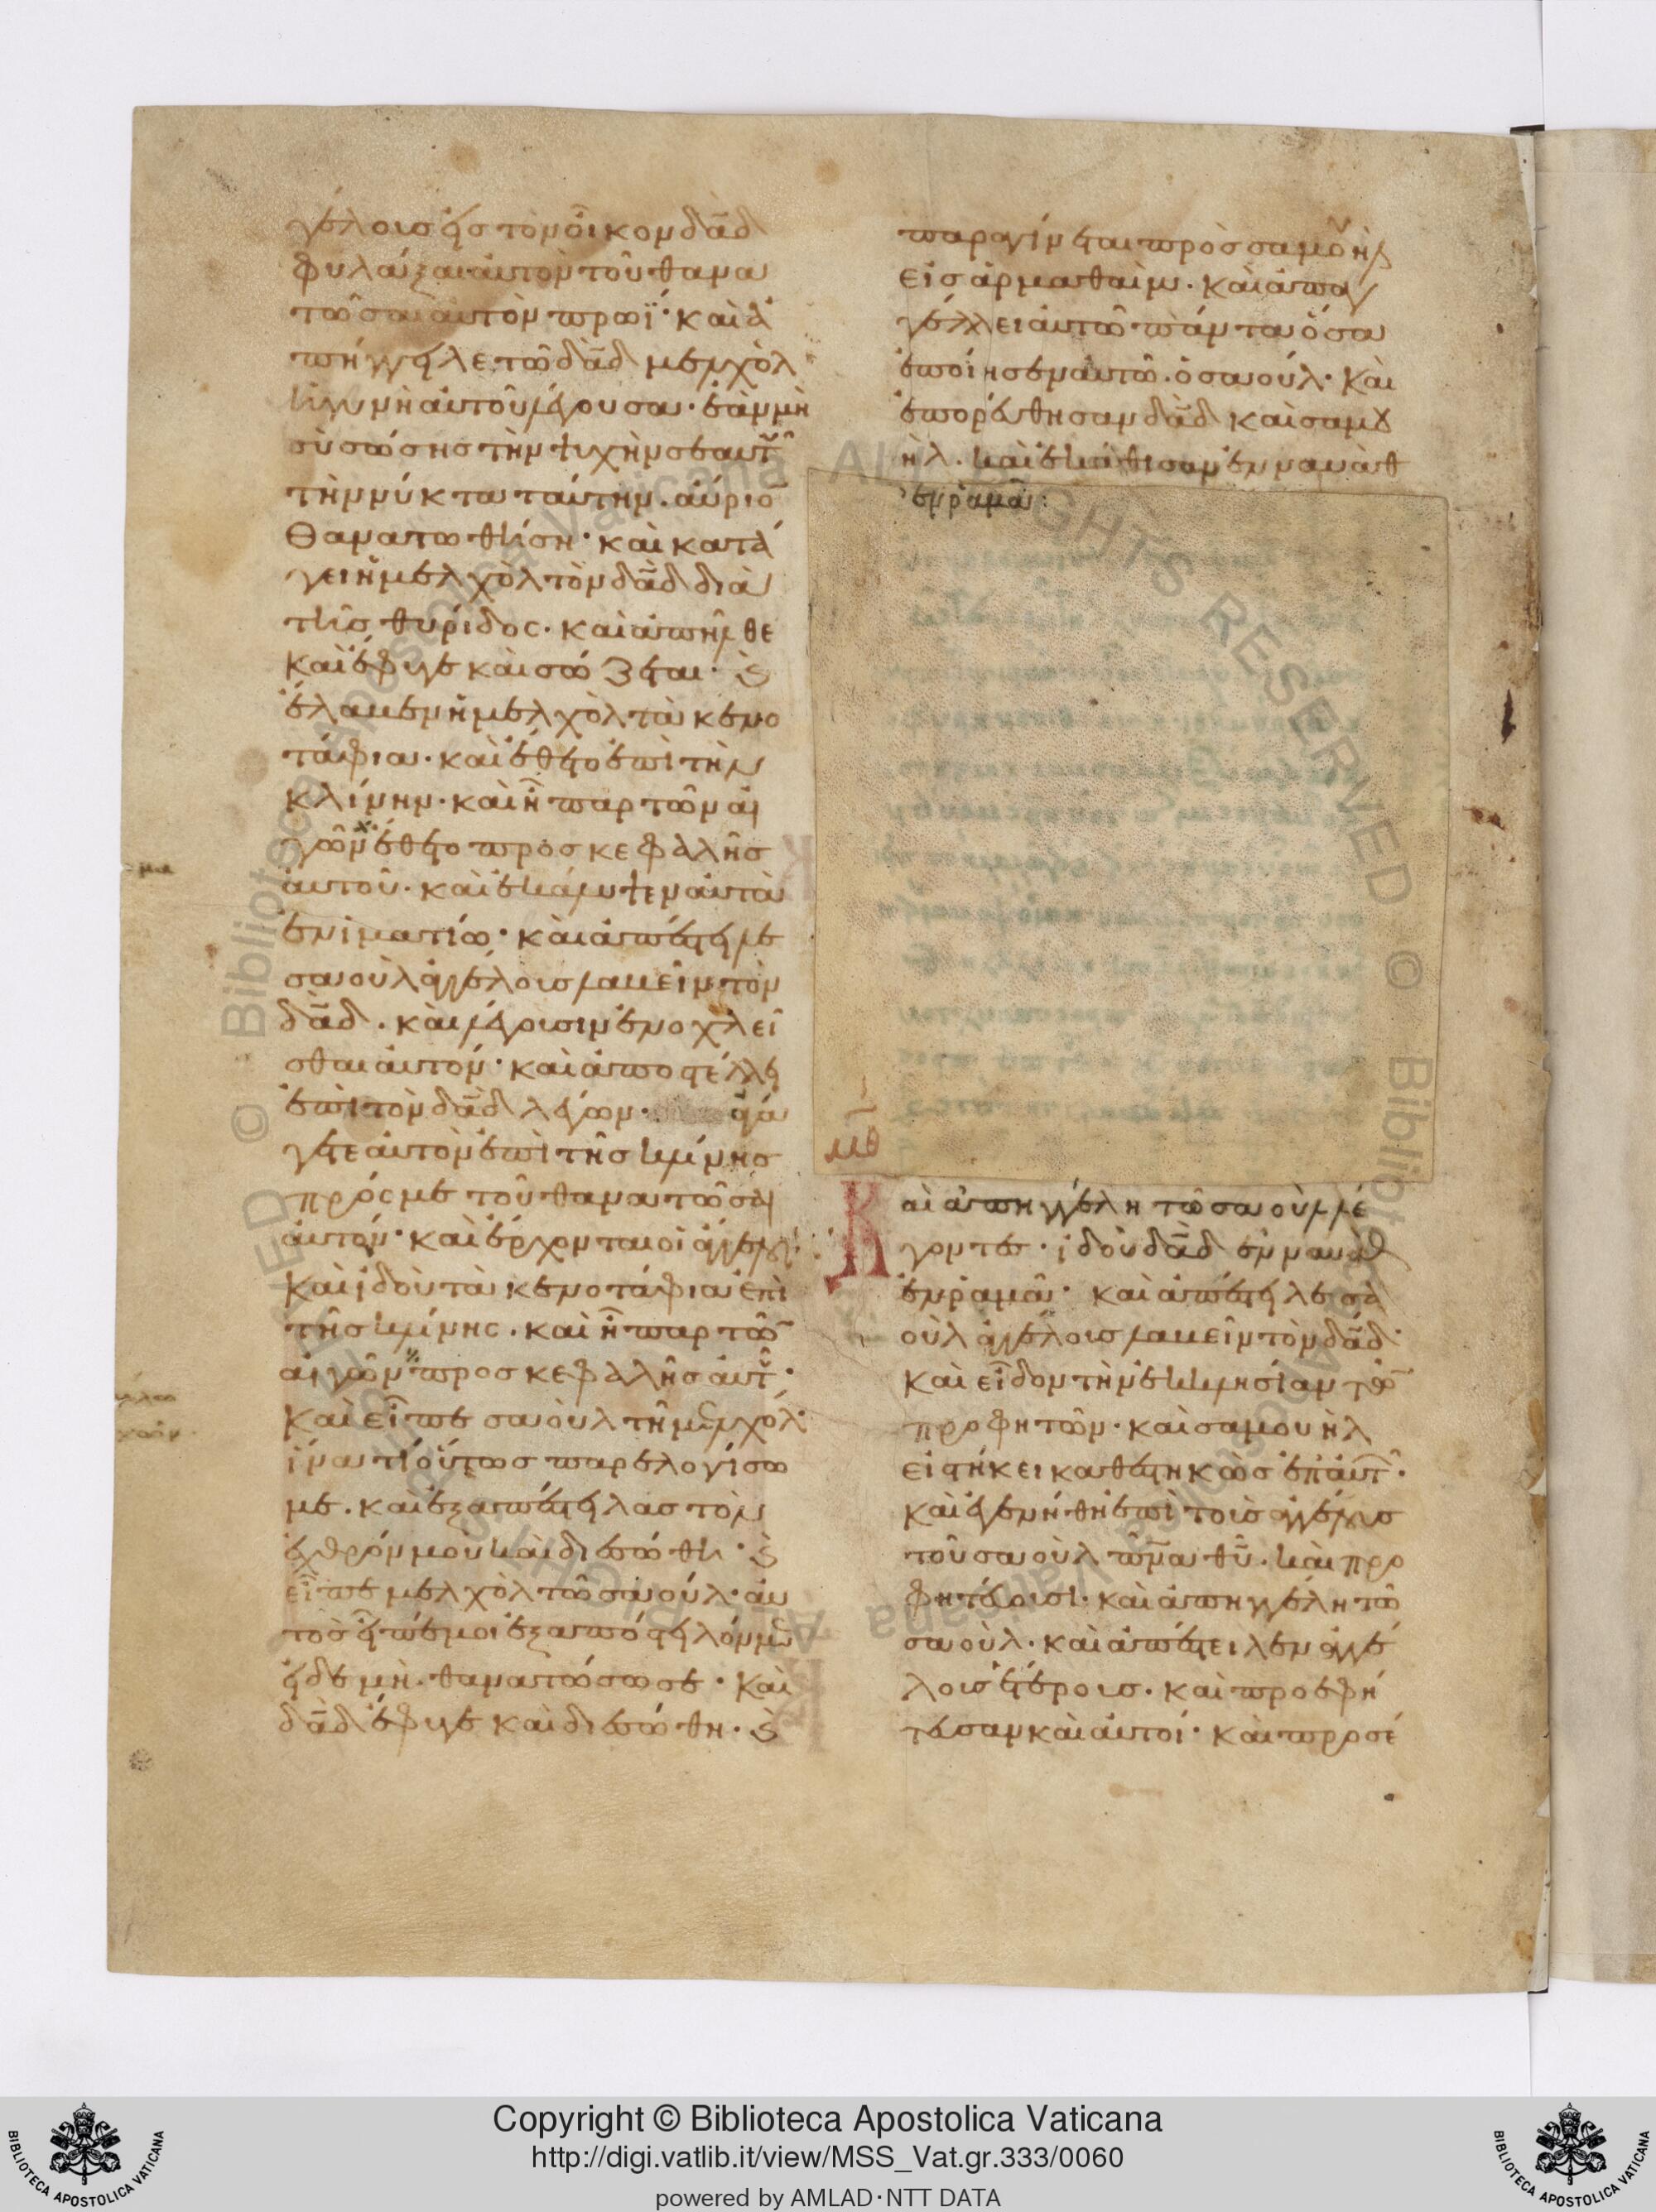 γέλοισ εἰσ τὸν οἶκον δ̅α̅δ
φυλάξαι αὐτὸν τοῦ θανα
τῶσαι αὐτὸν πρωΐ· καὶ ἀ
πήγγειλε τῶ δ̅α̅δ μελχὸλ
ἡ γυνὴ αὐτοῦ λέγουσα· ἐὰν μὴ
σὺ σώσησ τὴν ψυχὴν σεαυτοῦ
τὴν νύκτα ταύτην. αὔριο̅
θανατωθήση· καὶ κατά
γει ἡ μελχὸλ τὸν δ̅α̅δ διὰ
τῆσ θυρίδοσ. καὶ ἀπῆλθε
καὶ ἔφυγε καὶ σώζεται· ϗ
ἔλαβεν ἡ μελχὸλ τὰ κενο
τάφια. καὶ ἔθετο ἐπὶ τὴν
κλίνην. καὶ ἧπαρ τῶν αἰ
γῶν ἔθετο πρὸσ κεφαλῆσ
αὐτοῦ. καὶ ἐκάλυψεν αὐτὰ
ἐν ἱματίω· καὶ ἀπέστειλε
σαοὺλ ἀγγέλουσ λαβεῖν τὸν
δ̅α̅δ. καὶ λέγουσιν ἐνοχλεῖ
σθαι αὐτόν· καὶ ἀποστέλλει
ἐπὶ τὸν δ̅α̅δ λέγων· ἀγά
γετε αὐτὸν ἐπὶ τῆσ κλίνησ
πρόσ με τοῦ θανατῶσαι
αὐτόν· καὶ ἔρχονται οἱ ἄγγελοι·
καὶ ἰδοὺ τὰ κενοτάφια ἐπὶ
τῆσ κλίνησ. καὶ ἧπαρ τῶ̅
αἰγῶν προσ κεφαλῆσ αὐτοῦ·
καὶ εἶπε σαοὺλ τῆ μελχόλ·
ἵνα τί οὕτωσ παρελογίσω
με. καὶ ἐξαπέστειλασ τὸν
ἐχθρόν μου καὶ διεσώθη· ϗ
εἶπε μελχὸλ τῶ σαούλ· αὐ
τὸσ εἶπέ μοι ἐξαπόστειλόν με
εἰ δὲ μὴ. θανατώσω σε· καὶ
δ̅α̅δ ἔφυγε καὶ διεσώθη· ϗ
παραγίνεται πρὸσ σαμουὴλ
εἰσ ἀρμαθαὶμ. καὶ ἀπαγ
γέλλει αὐτῶ πάντα ὅσα
ἐποίησεν αὐτῶ. ὁ σαούλ· καὶ
ἐπορεύθησαν δ̅α̅δ καὶ σαμου
ὴλ. καὶ ἐκάθισαν ἐν ναυὰθ
ἐν ῥαμᾶ:
μθ
Καὶ ἀπηγγέλη τῶ σαοὺλ λέ
γοντεσ· ἰδοὺ δ̅α̅δ ἐν ναυὰθ
ἐν ῥαμᾶ· καὶ ἀπέστειλε σα
οὺλ ἀγγέλουσ λαβεῖν τὸν δ̅α̅δ·
καὶ εἶδον τὴν ἐκκλησίαν τῶ̅
προφητῶν. καὶ σαμουὴλ
εἱστήκει καθεστηκὼσ ἐπ᾽αὐτοῦ.
καὶ ἐγενήθη ἐπὶ τοὺσ ἀγγέλουσ
τοῦ σαοὺλ π̅ν̅α θ̅υ̅. καὶ προ
φητεύουσι. καὶ ἀπηγγέλη τῶ
σαοὺλ. καὶ ἀπέστειλεν ἀγγέ
λουσ ἑτέρουσ. καὶ προεφή
τευσαν καὶ αὐτοί· καὶ προσέ
Copyright © Biblioteca Apostolica Vaticana
http://digi.vatlib.it/view/MSS_Vat.gr.333/0060
powered by AMLAD·NTT DATA